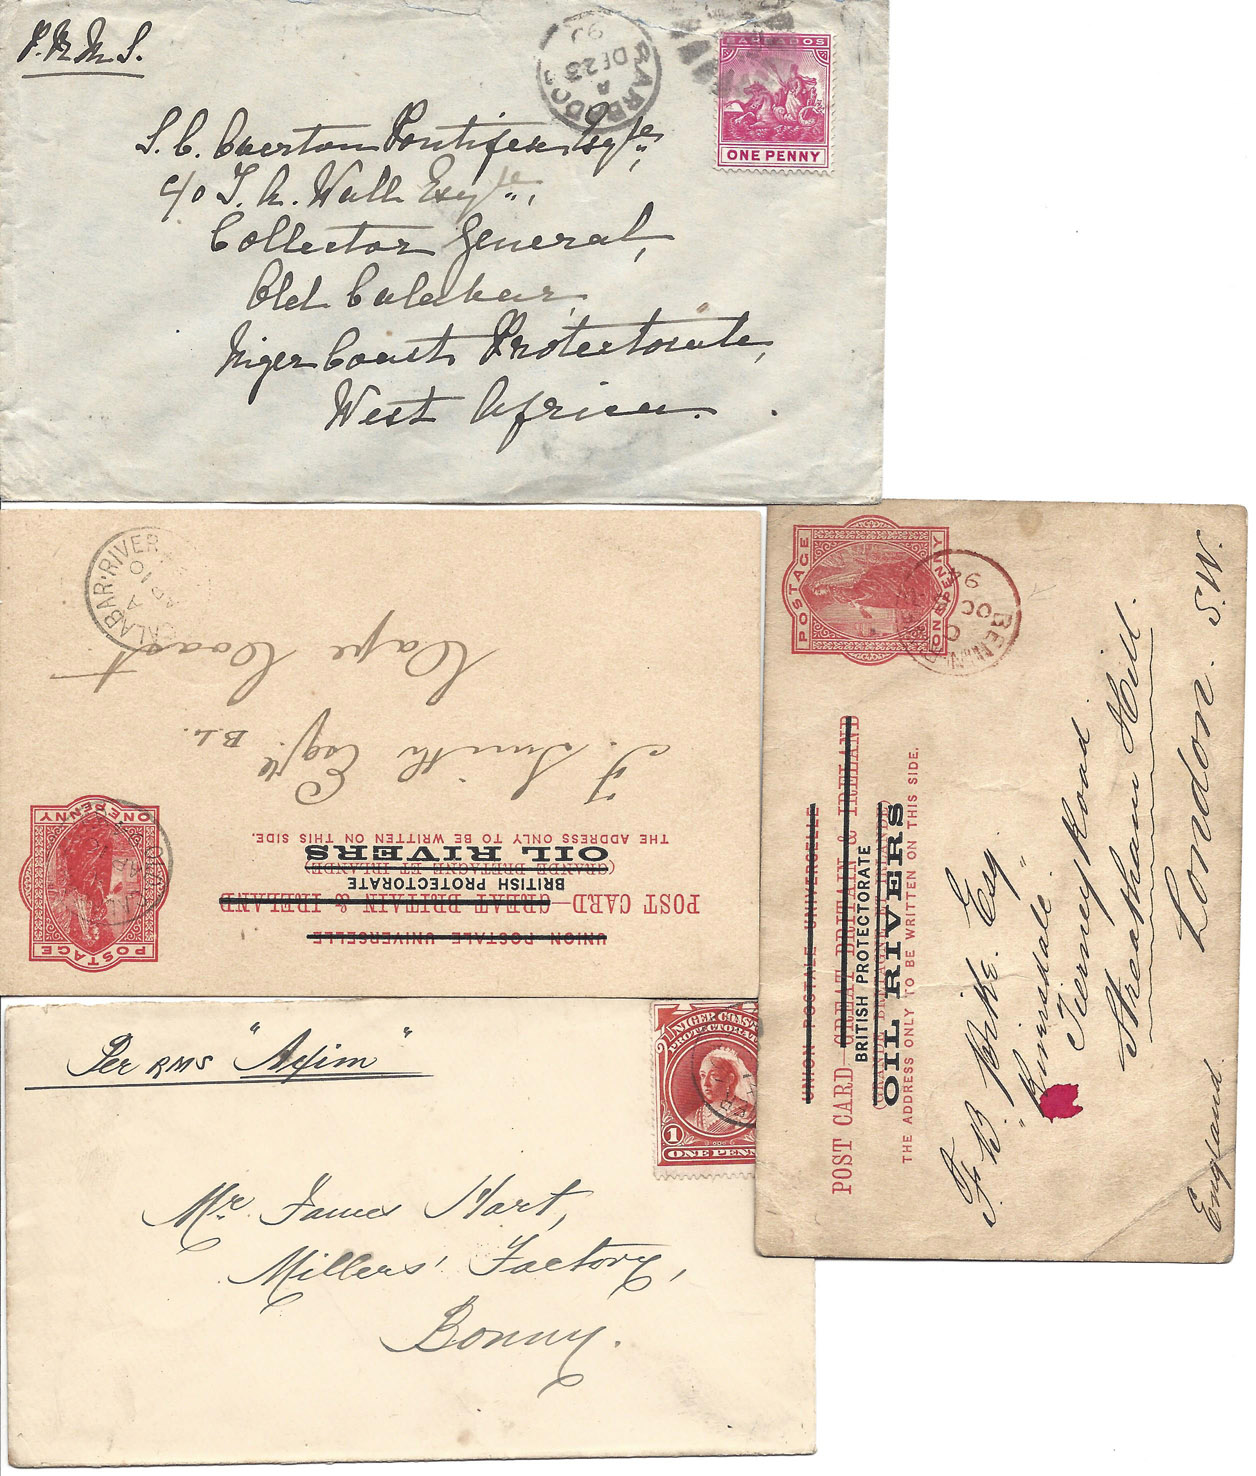 P.R.M.S.
BARBADOS
A
DE 23
BARBADOS
ONE PENNY
c/o
Collector General,
Old Calabar,
Niger Coast Protectorate,
West Africa.
CALABAR·RIVER
A
AP 10
Cape Coast
J. Smith Esqre
B.L.
POSTAGE
ONE PENNY
UNION POSTALE UNIVERSELLE
POST CARD—GREAT BRITAIN & IRELAND
BRITISH PROTECTORATE
(GRANDE BRETAGNE ET IRLANDE)
OIL RIVERS
THE ADDRESS ONLY TO BE WRITTEN ON THIS SIDE.
POSTAGE
ONE PENNY
BENIN
OC
94
UNION POSTALE UNIVERSELLE
POST CARD—GREAT BRITAIN & IRELAND
BRITISH PROTECTORATE
OIL RIVERS
THE ADDRESS ONLY TO BE WRITTEN ON THIS SIDE.
Esq
Tierney Road
Streatham Hill.
London. S.W.
England.
Per RMS "Axim"
NIGER COAST
PROTECTORATE
1
ONE PENN
Mr. James Hart,
Millers' Factory,
Bonny.